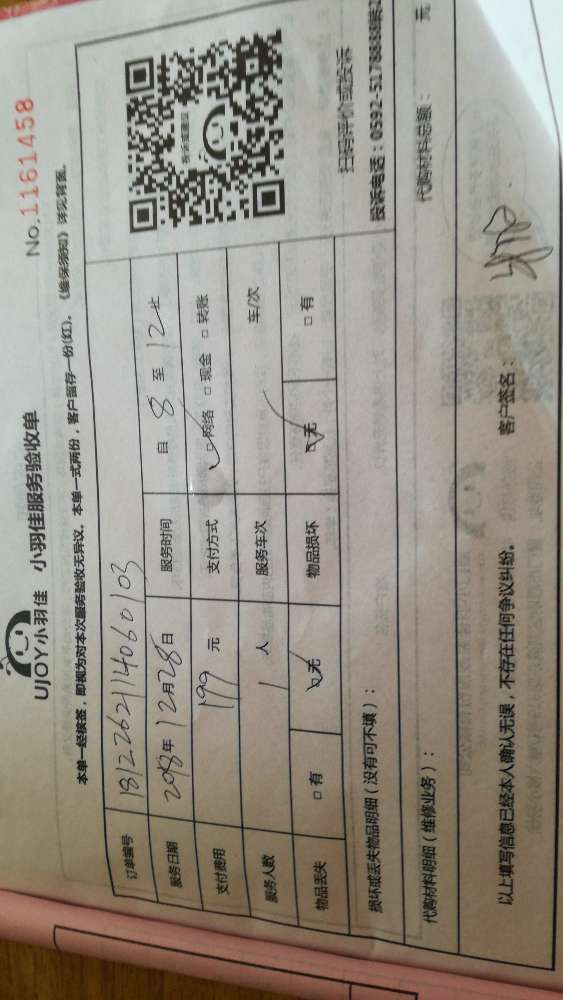 UJOY小羽佳 小羽佳服务验收单
No.1161458
本单一经核签，即视为对本次服务验收无异议。本单一式两份，客户留存一份(红)。《维保须知》详见背面。
订单编号 1812262114060103
服务日期 2018年12月28日 服务时间 自 8 至 12 止
支付费用 199 元 支付方式 ☑网络 □现金 □转账
服务人数 1 人 服务车次 车/次
物品丢失 □有 ☑无 物品损坏 ☑无 □有
投诉或建议
扫码评价或投诉
投诉电话：0592-5178888转2
损坏或丢失物品明细（没有可不填）：
代购材料明细（维修业务）： 代购材料总额： 元
以上填写信息已经本人确认无误，不存在任何争议纠纷。 客户签名：